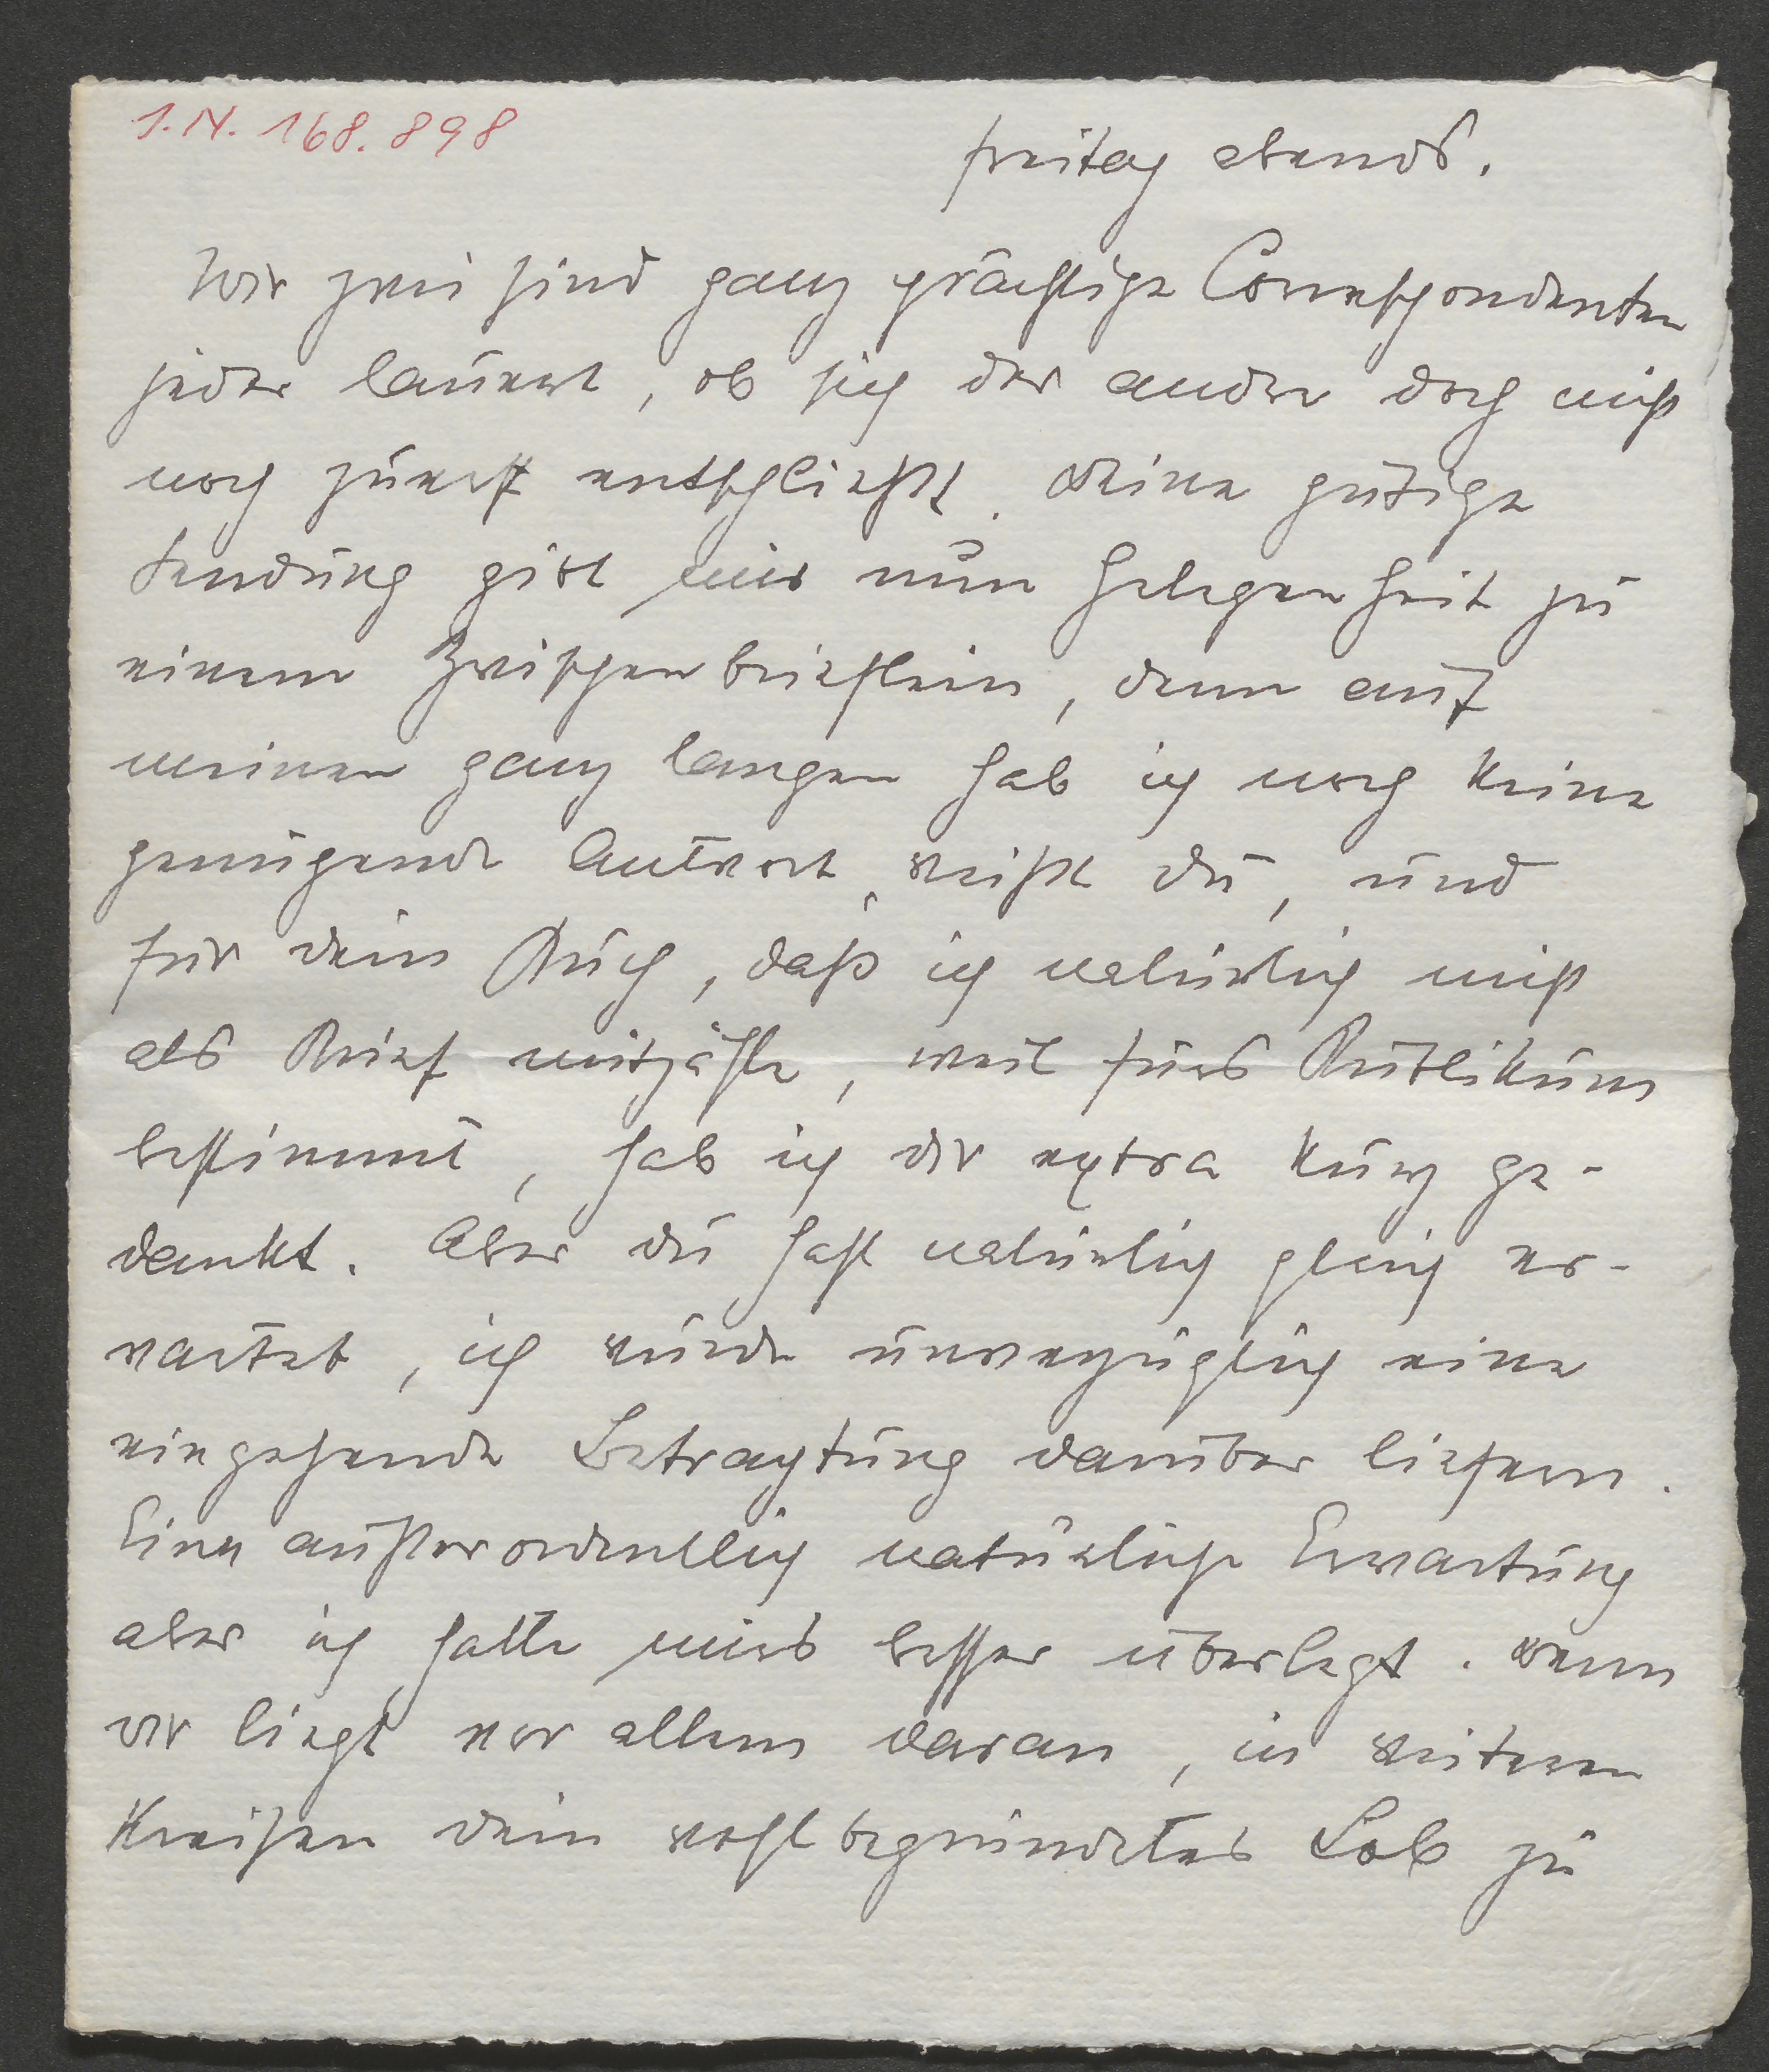 I.N. 168.898
freitag abends.
Wir zwei sind ganz prächtige Correspondenten
jeder lauert, ob sich der andre doch nicht
noch zuerst entschließt. Deine gütige
Sendung gibt mir nun Gelegenheit zu
einem Zwischenbrieflein, denn auf
meinen ganz langen hab ich noch keine
genügende Antwort, weißt du, und
für dein Buch, daß ich natürlich nicht
als Brief mitzähle, weil fürs Publikum
bestimmt, hab ich dir extra kurz ge-
dankt. Aber du hast natürlich gleich er-
wartet, ich würde unverzüglich eine
eingehende Betrachtung darüber liefern.
Eine außerordentlich natürliche Erwartung
aber ich hatte mirs besser überlegt. Denn
dir liegt vor allem daran, in weiteren
Kreisen dein wohlbegründetes Lob zu